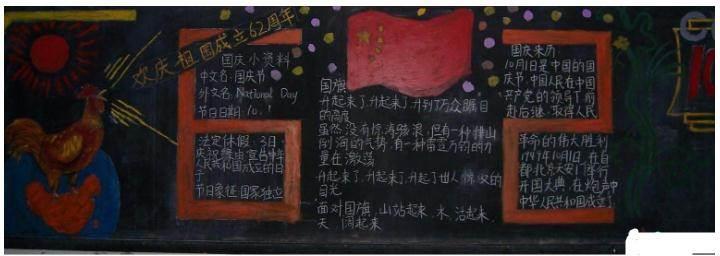 欢庆祖国成立62周年
国庆小资料
中文名:国庆节
外文名:National Day
节日日期:10.1
法定休假:3日
庆祝缘由:宣告中华
人民共和国成立的日
子
节日象征:国家独立
国旗
升起来了,升起来了,升到了万众瞩目
的高度
虽然没有惊涛骇浪,但有一种排山
倒海的气势,有一种雷霆万钧的力
量在激荡
升起来了,升起来了,升起了世人惊叹的
目光
面对国旗,山站起来,水,活起来,
天,阔起来
国庆来历:
10月1日是中国的国
庆节,中国人民在中国
共产党的领导下前
赴后继,取得人民
革命的伟大胜利
1949年10月1日,在首
都北京天安门举行
开国大典,在炮声中
中华人民共和国成立了